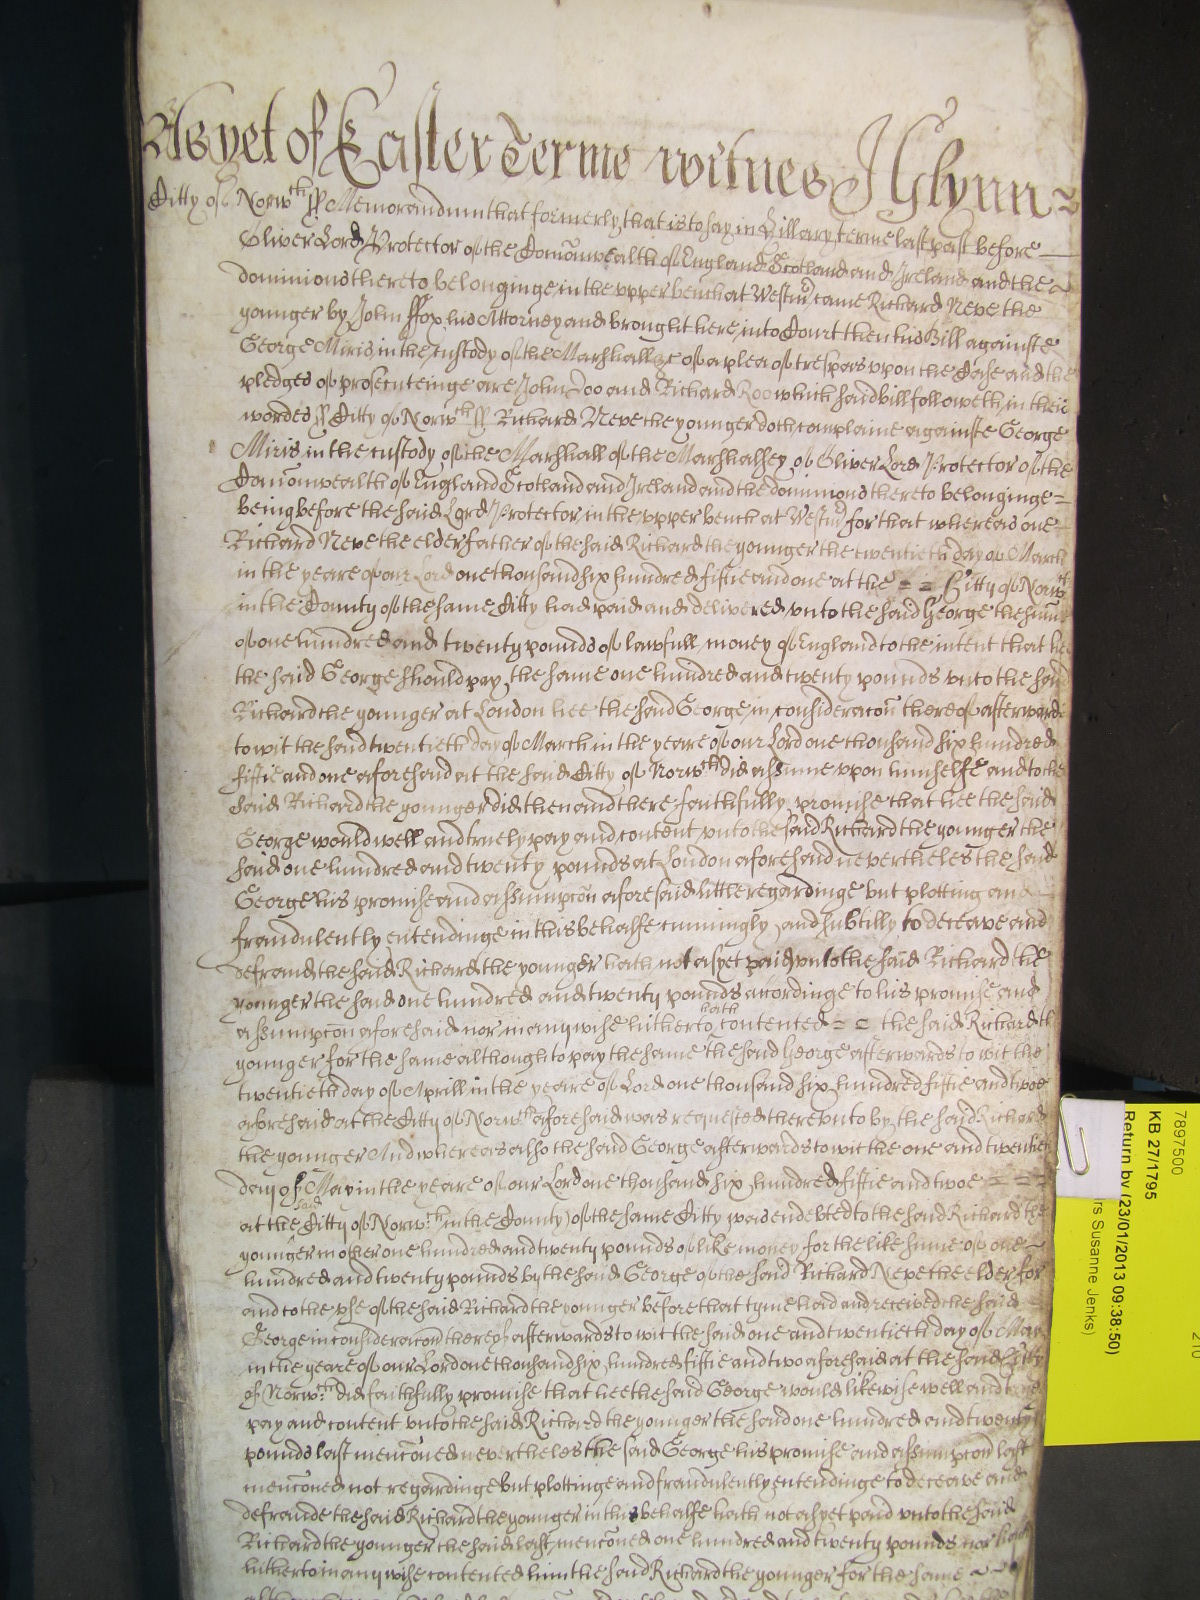 As yet of Easter Terme witnes J Glynn
Citty of Norwch ss Memorandum that formerly that is to say in Hillary terme last past before
Oliver Lord Protector of the Comonwealth of England Scotland and Ireland and the
dominions thereto belonginge in the upper bench at Westmr came Richard Neve the
younger by John Fox his Attorney and brought here into Court then his Bill againste
George Miris in the custody of the Marshall &c of a plea of trespass upon the Case and the
pledges of prosecuteinge are John Doo and Richard Roo which said bill followeth in their
wordes ss Citty of Norwch ss Richard Neve the younger doth complaine againste George
Miris in the custody of the Marshall of the Marshalsey of Oliver Lord Protector of the
Comonwealth of England Scotland and Ireland and the dominions thereto belonginge
being before the said Lord Protector in the upper bench at Westmr for that whereas one
Richard Neve the elder father of the said Richard the younger the twentieth day of March
in the yeare of our Lord one thousand six hundred fiftie and one at the = = Citty of Norwch
in the County of the same Citty had paid and delivered unto the said George the sume
of one hundred and twenty pounds of lawfull money of England to the intent that hee
the said George should pay the same one hundred and twenty pounds unto the said
Richard the younger at London hee the said George in consideracon thereof afterwards
to wit the said twentieth day of March in the yeare of our Lord one thousand six hundred
fiftie and one aforesaid at the said Citty of Norwch did assume upon himselfe and to the
said Richard the younger did then and there faithfully promise that hee the said
George would well and truely pay and content unto the said Richard the younger the
said one hundred and twenty pounds at London aforesaid nevertheles the said
George his promise and assumpcon aforesaid little regardinge but plotting and
fraudulently entendinge in this behalfe cunningly and subtilly to deceave and
defraud the said Richard the younger hath not as yet paid unto the said Richard the
younger the said one hundred and twenty pounds accordinge to his promise and
assumpcon aforesaid nor in any wise hitherto hath contented = = the said Richard the
younger for the same although to pay the same the said George afterwards to wit the
twentieth day of Aprill in the yeare of Lord one thousand six hundred fiftie and twoe
aforesaid at the Citty of Norwch aforesaid was requested thereunto by the said Richard
the younger And whereas also the said George afterwards to wit the one and twentieth
day of May in the yeare of our Lord one thousand six hundred fiftie and twoe = = =
at the said Citty of Norwch in the County of the same Citty was endebted to the said Richard the
younger in other one hundred and twenty pounds of like money for the like sume of one
hundred and twenty pounds by the said George of the said Richard Neve the elder for
and to the use of the said Richard the younger before that tyme had and received the said
George in consideracon thereof afterwards to wit the said one and twentieth day of May
in the yeare of our Lord one thousand six hundred fiftie and two aforesaid at the said Citty
of Norwch did faithfully promise that hee the said George would likewise well and truely
pay and content unto the said Richard the younger the said one hundred and twenty
pounds last menconed nevertheles the said George his promise and assumpcon last
menconed not regardinge but plottinge and fraudulently entendinge to deceave and
defraude the said Richard the younger in this behalfe hath not as yet paid unto the said
Richard the younger the said last menconed one hundred and twenty pounds nor hath
hitherto in any wise contented him the said Richard the younger for the same
7897500
KB 27/1795
Return by (23/01/2013 09:38:50)
rs Susanne Jenks)
210